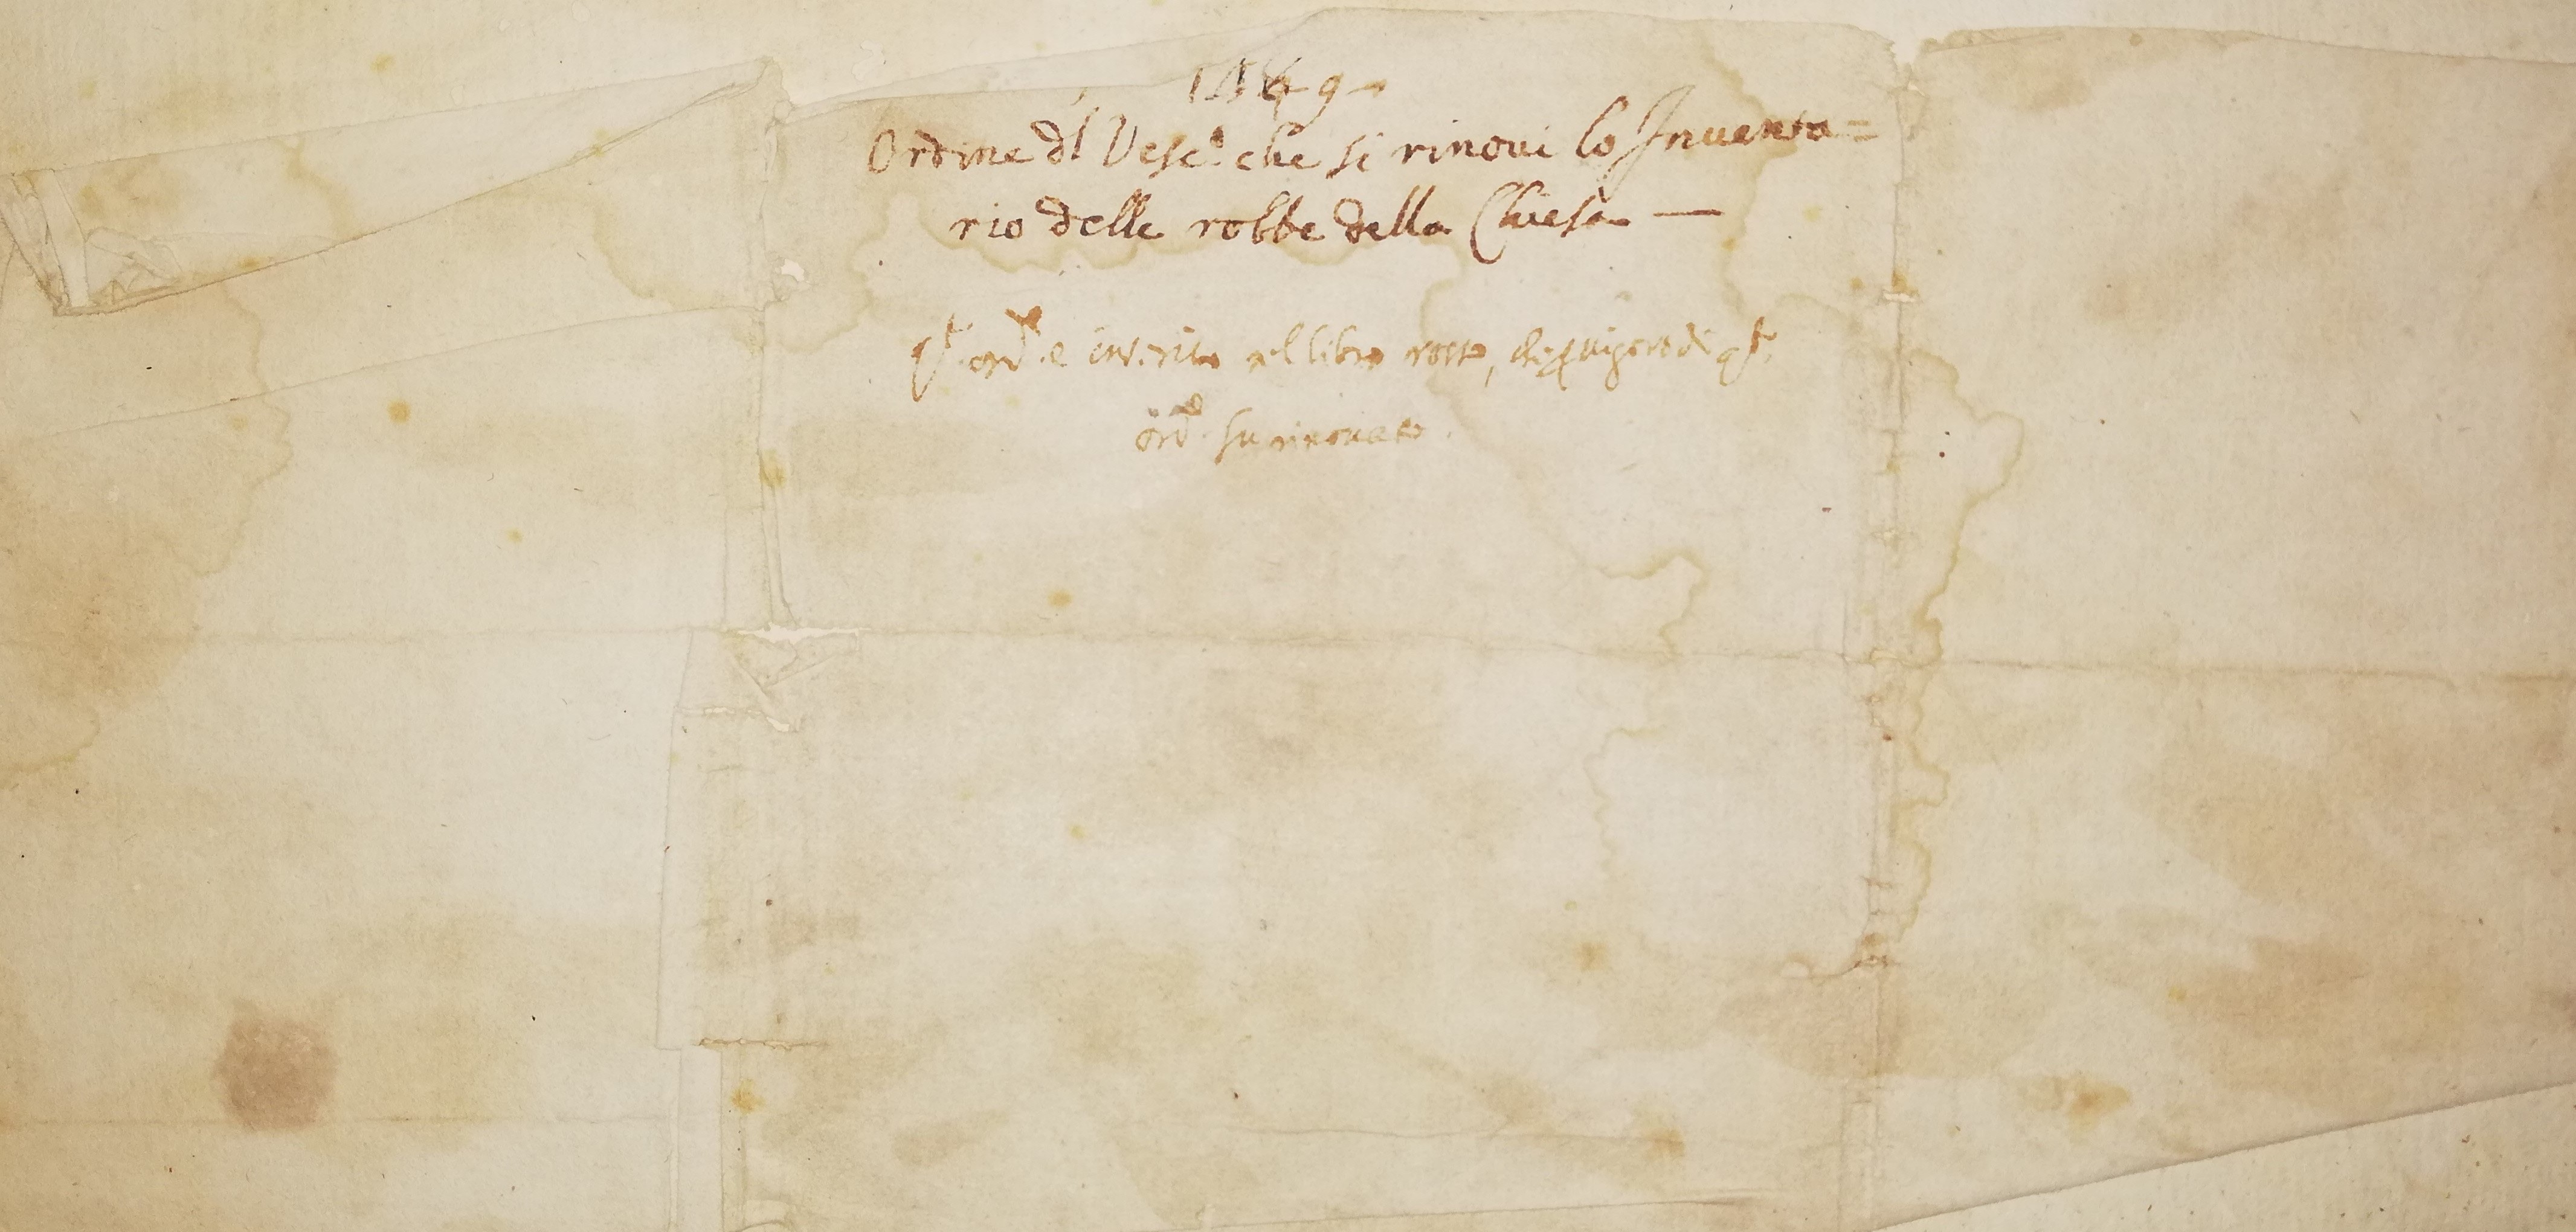 Ordine dl Vesc.o che si rinoui lo Inuenta=
rio delle robbe della Chiesa —
qst. ord.e è inserito nel libro rosso, che p uigore di qst.
ord.e fu rinouato.